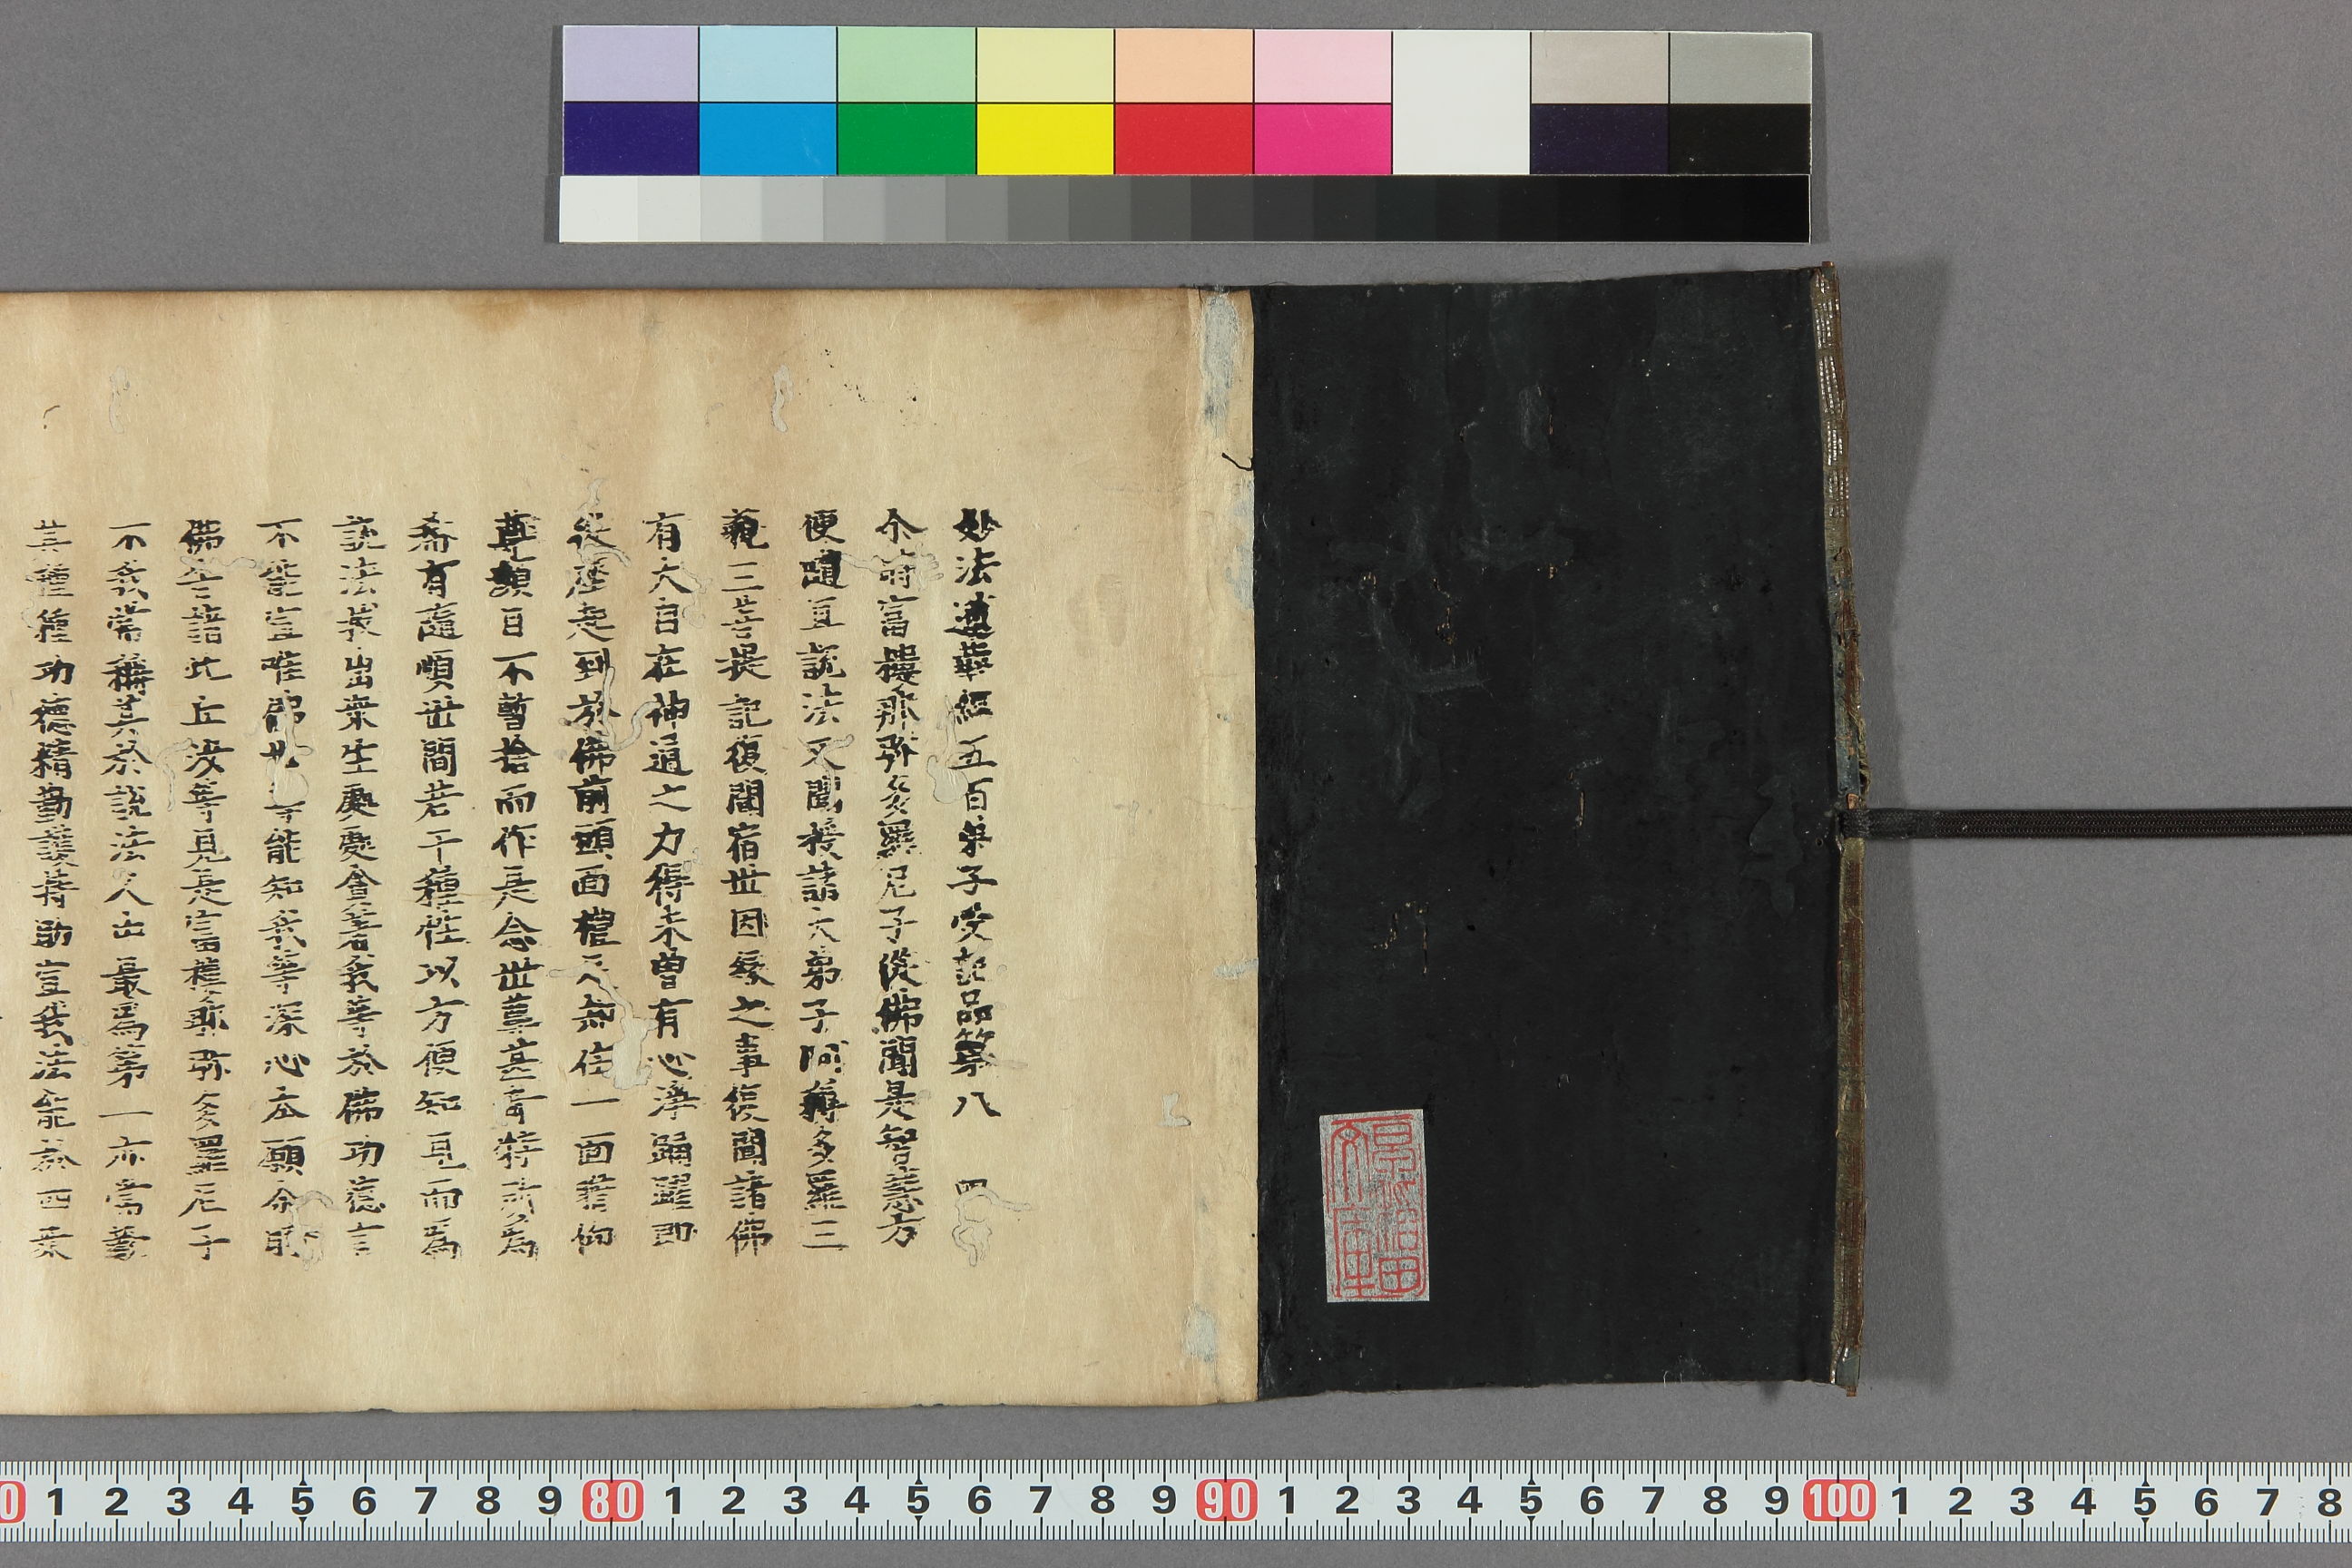 妙法蓮華經五百弟子受記品第八 四
尒時富樓那弥多羅尼子從佛聞是智慧方
便隨宜說法又聞授諸大弟子阿耨多羅三
藐三菩提記復聞宿世因縁之事復聞諸佛
有大自在神通之力得未曾有心淨踊躍即
從座起到於佛前頭面禮足却住一面瞻仰
尊顏目不暫捨而作是念世尊甚奇特所為
希有隨順世間若干種性以方便知見而為
說法拔出衆生處處貪著我等於佛功德言
不能宣唯佛世尊能知我等深心本願尒時
佛告諸比丘汝等見是富樓那弥多羅尼子
不我常稱其於說法人中最為第一亦常歎
其種種功德精勤護持助宣我法能於四衆
0 1 2 3 4 5 6 7 8 9 80 1 2 3 4 5 6 7 8 9 90 1 2 3 4 5 6 7 8 9 100 1 2 3 4 5 6 7 8